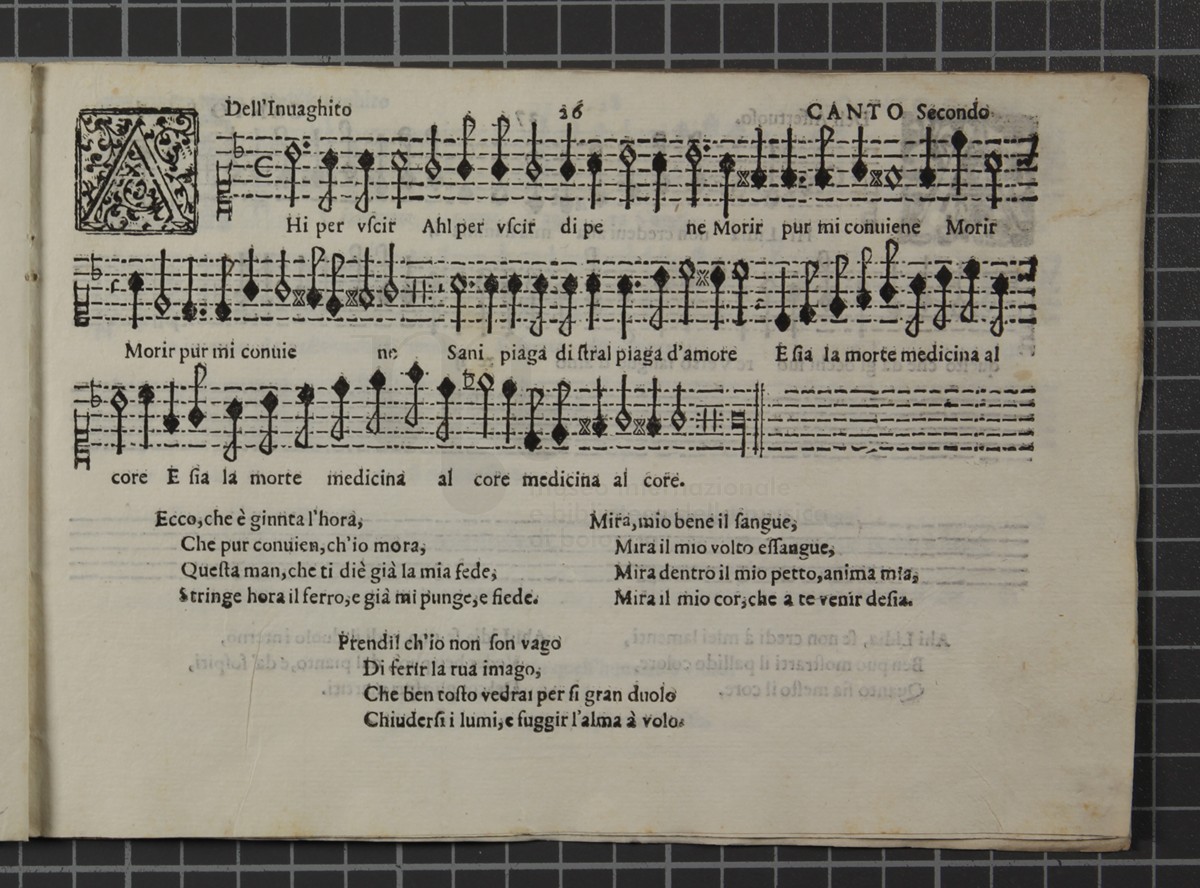 Dell'Inuaghito 26 CANTO Secondo
A
Hi per vſcir Ahl per vſcir di pe ne Morir pur mi conuiene Morir
Morir pur mi conuie ne Sani piaga di ſtral piaga d'amore E ſia la morte medicina al
core E ſia la morte medicina al core medicina al core.
Ecco, che è giunta l'hora,
Che pur conuien, ch'io mora,
Queſta man, che ti diè già la mia fede,
Stringe hora il ferro, e già mi punge, e fiede.
Mira, mio bene il ſangue,
Mira il mio volto eſſangue,
Mira dentro il mio petto, anima mia,
Mira il mio cor, che a te venir deſia.
Prendil ch'io non ſon vago
Di ferir la tua imago,
Che ben toſto vedrai per ſi gran duolo
Chiuderſi i lumi, e fuggir l'alma à volo.